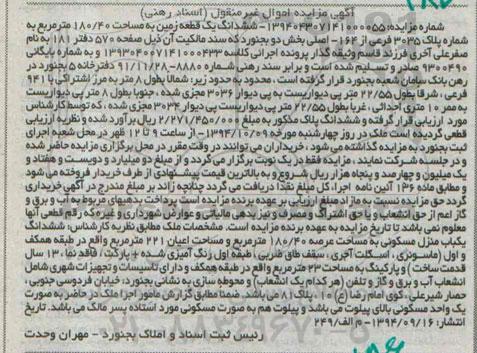 آگهی مزایده اموال غیرمنقول (اسناد رهنی)
شماره مزایده: ۱۳۹۴۰۴۳۰۷۱۴۱۰۰۰۰۵۵- ششدانگ یک قطعه زمین به مساحت ۱۸۰/۴۰ مترمربع به
شماره پلاک ۳۰۳۵ فرعی از ۱۶۴- اصلی بخش دو بجنورد که سند مالکیت آن ذیل صفحه ۵۷۰ دفتر ۱۸۱ به نام
صفرعلی آخری فرزند قاسم وثیقه گذار پرونده اجرائی کلاسه ۱۳۹۳۰۴۰۰۷۱۴۱۰۰۰۴۳۳ و به شماره بایگانی
۹۳۰۰۴۹۰ صادر و تسلیم شده است و برابر سند رهنی شماره ۸۸۸۰-۹۱/۱۱/۲۸ دفترخانه ۵ بجنورد در
رهن بانک سامان شعبه بجنورد قرار گرفته است، محدود به حدود زیر: شمالا بطول ۸ متر به مرز اشتراکی با ۹۴۱
فرعی، شرقا بطول ۲۲/۵۵ متر پی دیواریست به پی دیوار ۳۰۳۶ مجزی شده، جنوبا بطول ۸ متر پی دیواریست
به ممر ۱۰ متری احداثی، غربا بطول ۲۲/۵۵ متر پی دیواریست پی دیوار ۳۰۳۴ مجزی شده، که توسط کارشناس
مورد ارزیابی قرار گرفته و ششدانگ پلاک مذکور به مبلغ ۲/۲۷۱/۴۵۰/۰۰۰ ریال برآورد شده و نظریه ارزیابی
قطعی گردیده است ملک در روز چهارشنبه مورخه ۱۳۹۴/۱۰/۰۹- از ساعت ۹ تا ۱۲ ظهر در محل شعبه اجرای
ثبت بجنورد به مزایده گذاشته می شود، خریداران می توانند در وقت مقرر در محل برگزاری مزایده حاضر شده
و در جلسه شرکت نمایند، مزایده فقط در یک نوبت برگزار می گردد و از مبلغ دو میلیارد و دویست و هفتاد و
یک میلیون و چهارصد و پنجاه هزار ریال شروع و به بالاترین قیمت پیشنهادی از طرف خریدار فروخته می شود
و مطابق ماده ۱۳۶ آئین نامه اجرا، کل مبلغ نقدا دریافت می گردد چنانچه زائد بر مبلغ مندرج در آگهی خریداری
گردد حق مزایده نسبت به مازاد مبلغ ارزیابی بر عهده برنده مزایده است پرداخت بدهیهای مربوط به آب و برق و
گاز اعم از حق انشعاب و یا حق اشتراک و مصرف و نیز بدهی مالیاتی و عوارض شهرداری و غیره که رقم قطعی آنها
معلوم نمی باشد تا تاریخ مزایده به عهده برنده مزایده است. مشخصات ملک مطابق نظریه کارشناس: ششدانگ
یکباب منزل مسکونی به مساحت عرصه ۱۸۰/۴۰ مترمربع و مساحت اعیان ۲۲۱ مترمربع واقع در طبقه همکف
و اول (ماسونری، اسکلت آجری، سقف طاق ضربی، طبقه اول رنگ آمیزی شده + پارکت، فاقد نما، ۱۳ سال
قدمت ساخت) و پارکینگ به مساحت ۲۳ مترمربع واقع در طبقه همکف و دارای تاسیسات و تجهیزات شهری شامل
انشعاب آب و برق و گاز و تلفن (هر کدام یک انشعاب) و محوطه سازی به نشانی بجنورد: خیابان فردوسی جنوبی،
حصار شیرعلی، کوی امام رضا (ع) ۱۰، پلاک ۸۱ می باشد. ضمنا مطابق گزارش مامور اجرا ملک در حاضر به صورت
یک واحد مسکونی بالای پیلوت می باشد و پیلوت هم به صورت مسکونی مورد استفاده پسر مالک می باشد. تاریخ
انتشار: ۱۳۹۴/۰۹/۱۶- م الف/۲۴۹
رئیس ثبت اسناد و املاک بجنورد - مهران وحدت